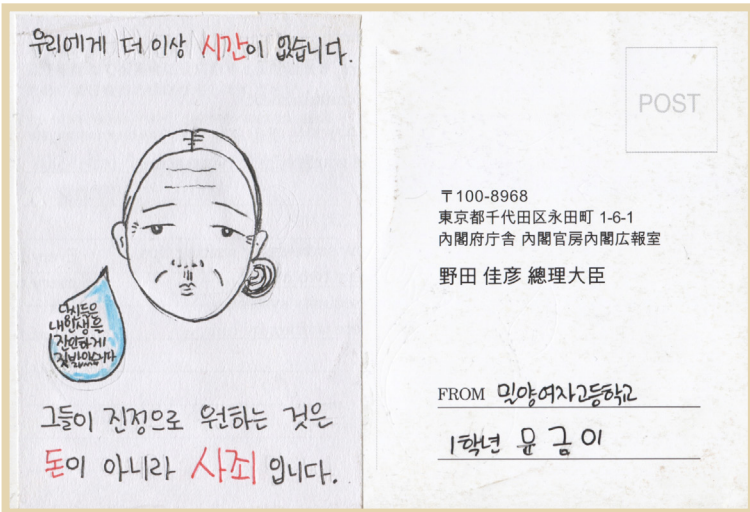 우리에게 더 이상 시간이 없습니다.
당신들은
내 인생을
잔인하게
짓밟았습니다
그들이 진정으로 원하는 것은
돈이 아니라 사죄 입니다.
POST
〒100-8968
東京都千代田区永田町 1-6-1
內閣府庁舎 內閣官房內閣広報室
野田 佳彦 總理大臣
FROM 밀양여자고등학교
1학년 윤금이